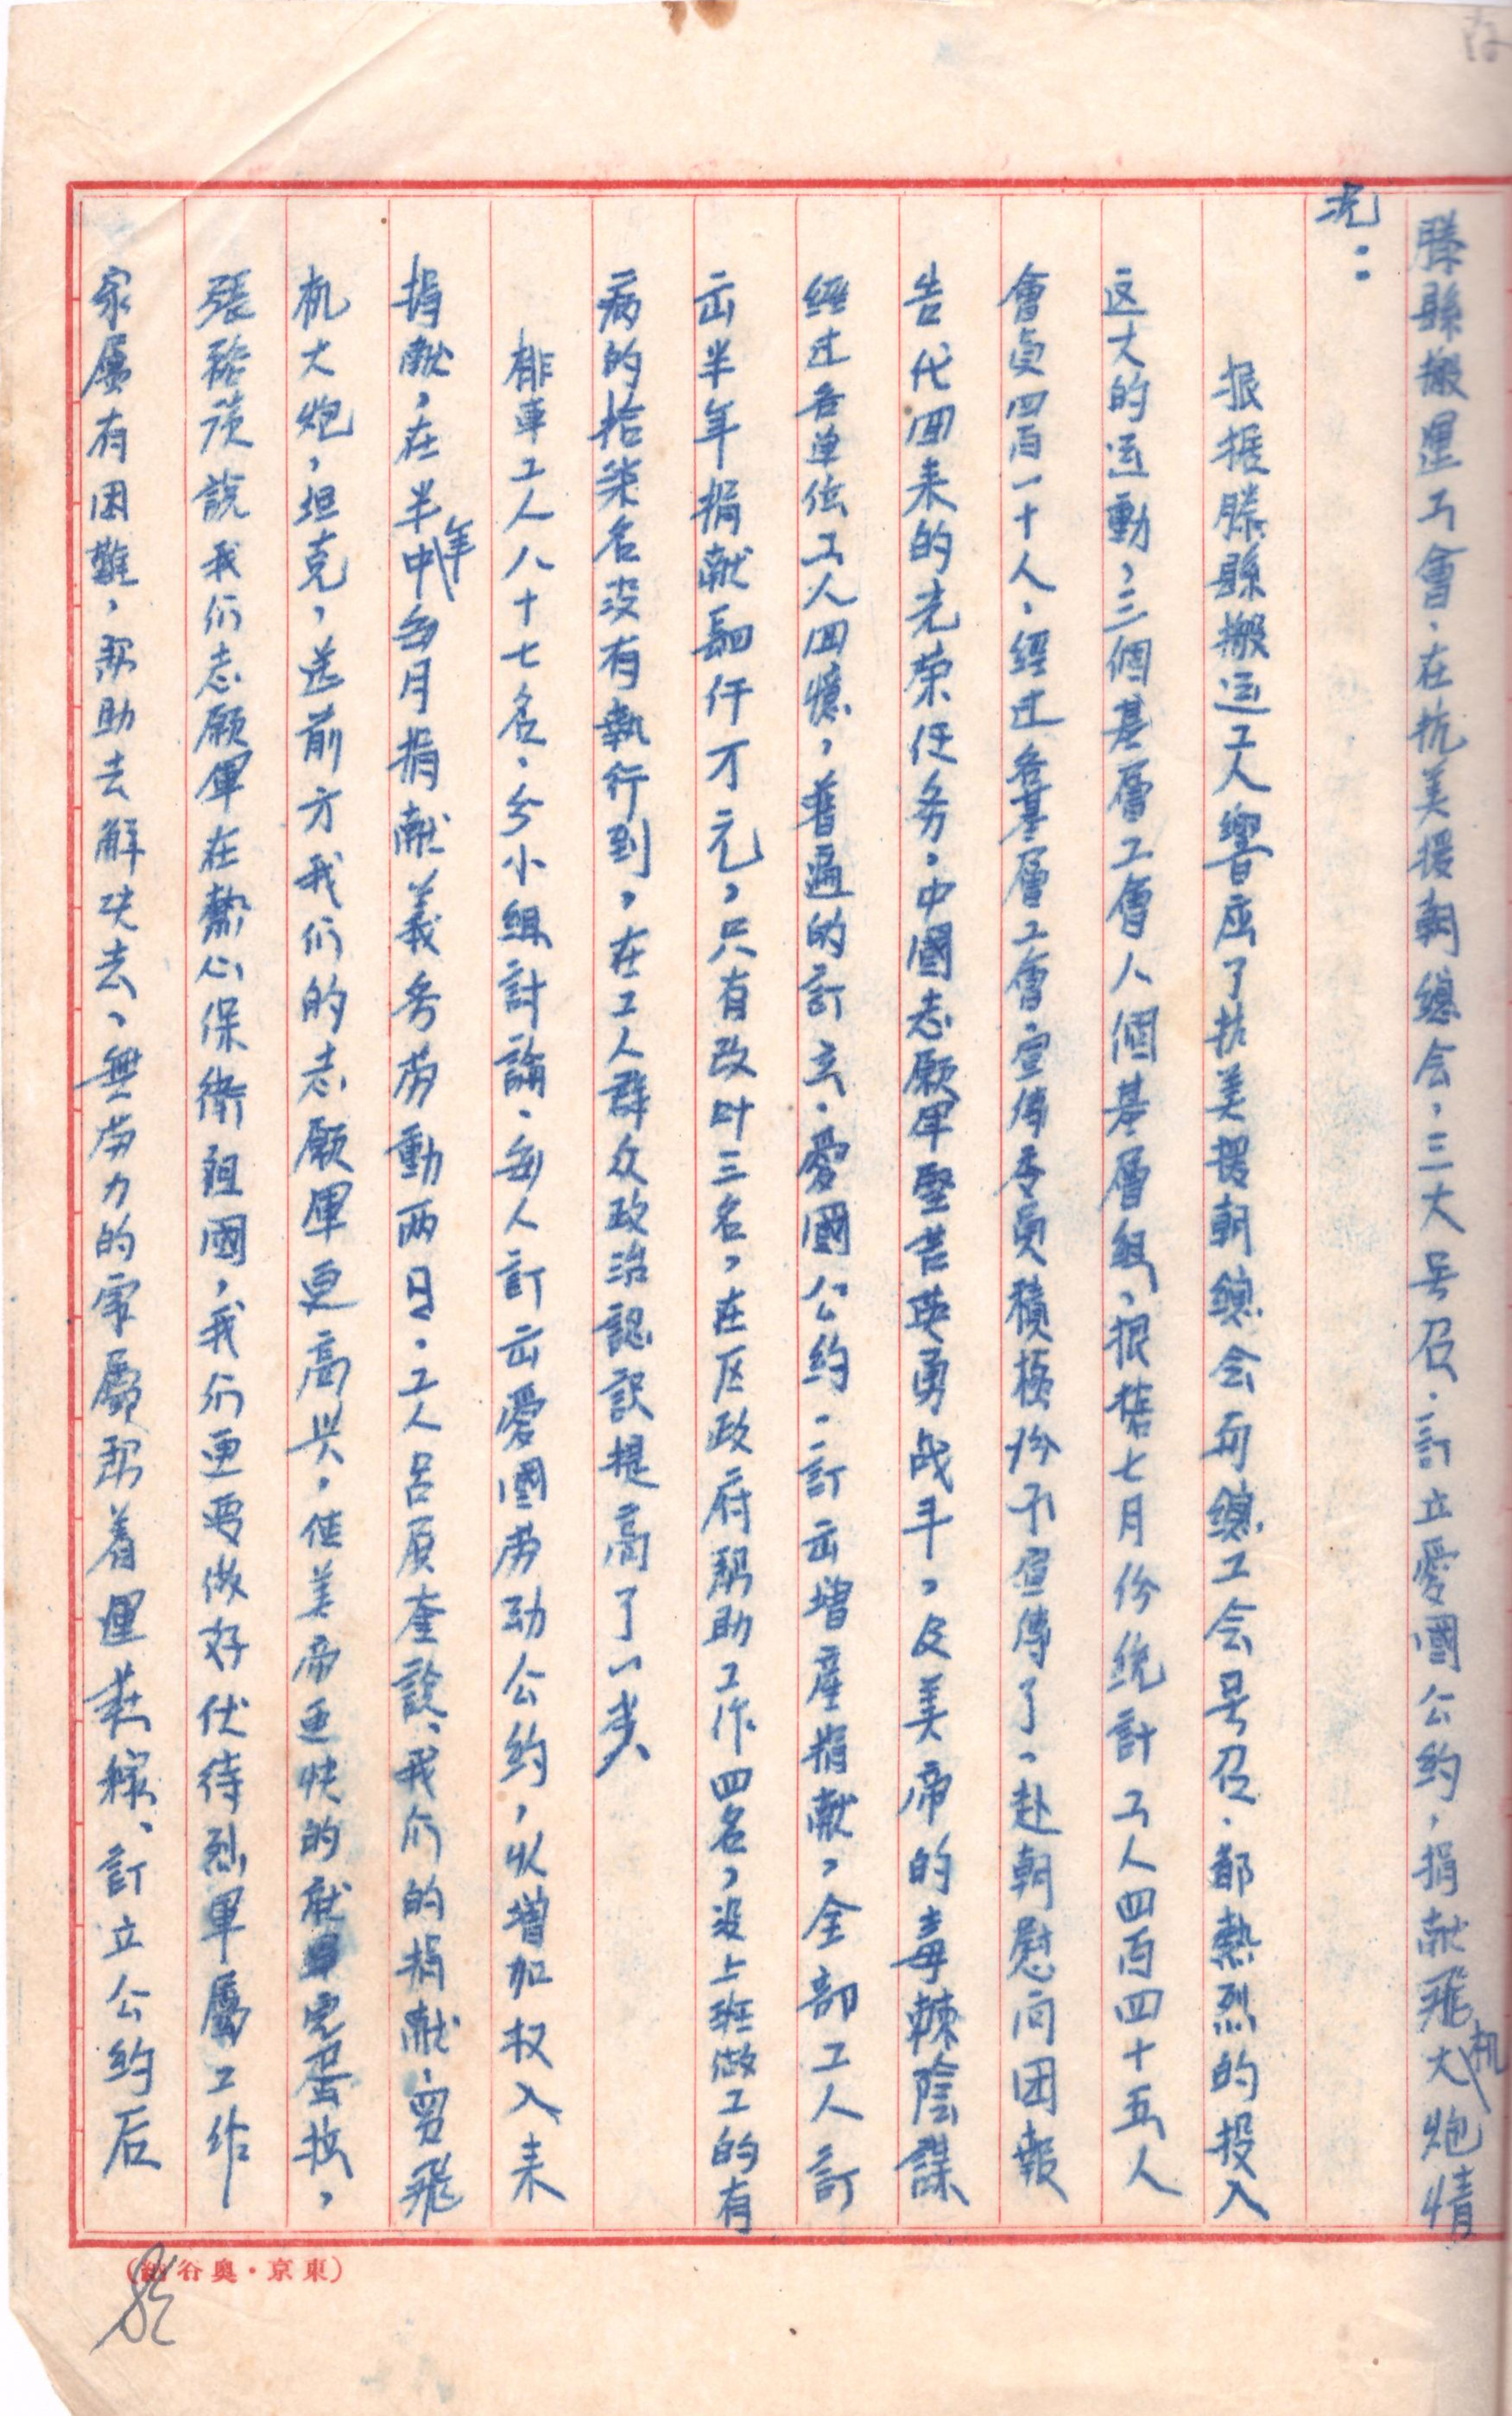 滕縣搬運工會、在抗美援朝總会,三大号召.訂立愛國公約,捐献飛机大炮情
况:
根据滕縣搬运工人響应了抗美援朝總会和總工会号召.都熱烈的投入
这大的运動,三個基層工會八個基層組、根据七月份统計工人四百四十五人
會員四百一十人.經过各基層工會宣傳委員積極份子宣傳了、赴朝慰问团報
告代回来的光荣任务.中國志願軍坚苦英勇战斗,及美帝的毒辣陰謀
經过各单位工人回憶,普遍的訂立.愛國公約.訂出增産捐献,全部工人訂
出半年捐献四仟万元,只有改叶三名,在区政府帮助工作四名,没上班做工的有
病的拾柒名没有執行到,在工人群众政治認識提高了一步
排車工人八十七名.分小組討論.每人訂出愛國劳动公約,以增加收入来
捐献,在半年中每月捐献義务劳動两日.工人呂原奎說、我们的捐献、買飛
机大炮,坦克,送前方我们的志願軍更高兴,使美帝更快的就完蛋拉,
張說我们志願軍在熱心保衛祖國,我们更要做好优待烈軍屬工作
家屬有困難,帮助去解决去、無劳力的家屬帮着運莊稼、訂立公約后
(東京・奥谷納)